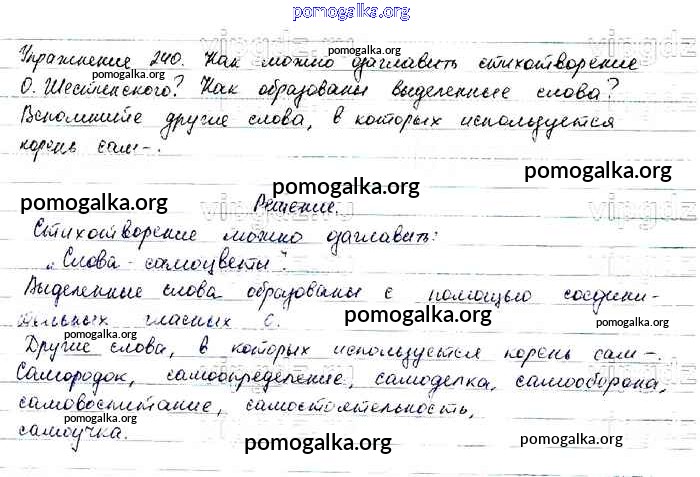 pomogalka.org
Упражнение 240. Как можно озаглавить стихотворение
pomogalka.org
О. Шестинского? Как образованы выделенные слова?
pomogalka.org
Вспомните другие слова, в которых используется
корень сам-.
pomogalka.org
pomogalka.org
pomogalka.org
pomogalka.org
Решение.
Стихотворение можно озаглавить:
„Слова-самоцветы".
Выделенные слова образованы с помощью соедини-
тельных гласных О.
pomogalka.org
pomogalka.org
pomogalka.org
Другие слова, в которых используется корень сам-.
Самородок, самоопределение, самоделка, самооборона,
pomogalka.org
самовоспитание, самостоятельность,
pomogalka.org
самоучка.
pomogalka.org
pomogalka.org